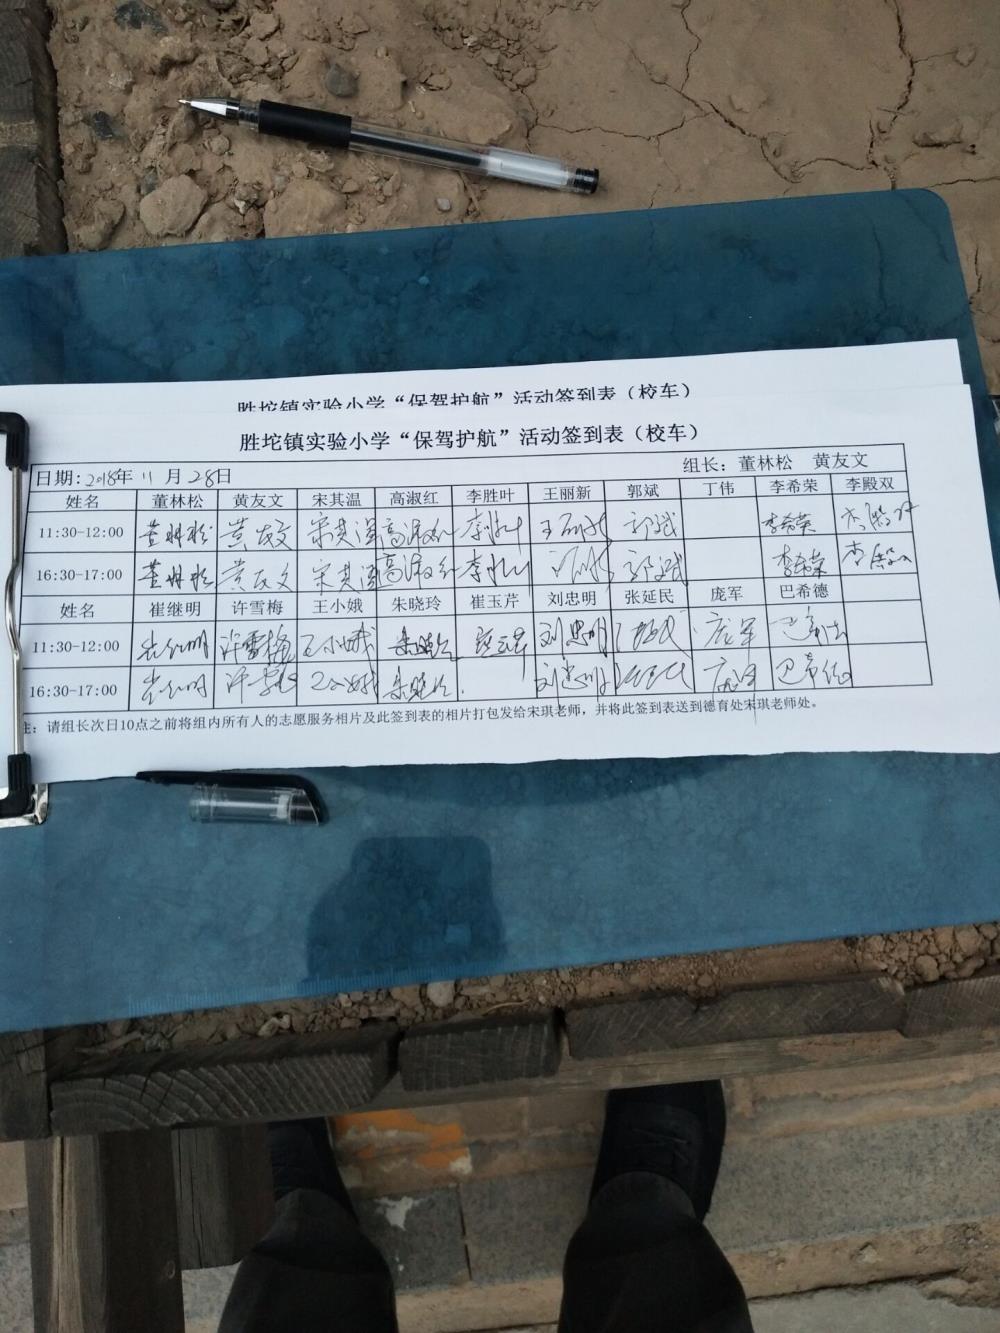 胜坨镇实验小学“保驾护航”活动签到表（校车）
胜坨镇实验小学“保驾护航”活动签到表（校车）
日期：2018年 11 月 28日 组长：董林松 黄友文
姓名 董林松 黄友文 宋其温 高淑红 李胜叶 王丽新 郭斌 丁伟 李希荣 李殿双
11:30-12:00 董林松 黄友文 宋其温 高淑红 李胜叶 王丽新 郭斌 李希荣 李殿双
16:30-17:00 董林松 黄友文 宋其温 高淑红 李胜叶 郭斌 李希荣 李殿双
姓名 崔继明 许雪梅 王小娥 朱晓玲 崔玉芹 刘忠明 张延民 庞军 巴希德
11:30-12:00 崔继明 许雪梅 王小娥 朱晓玲 崔玉芹 刘忠明 张延民 庞军 巴希德
16:30-17:00 崔继明 许雪梅 王小娥 朱晓玲 刘忠明 张延民 庞军 巴希德
注：请组长次日10点之前将组内所有人的志愿服务相片及此签到表的相片打包发给宋琪老师，并将此签到表送到德育处宋琪老师处。